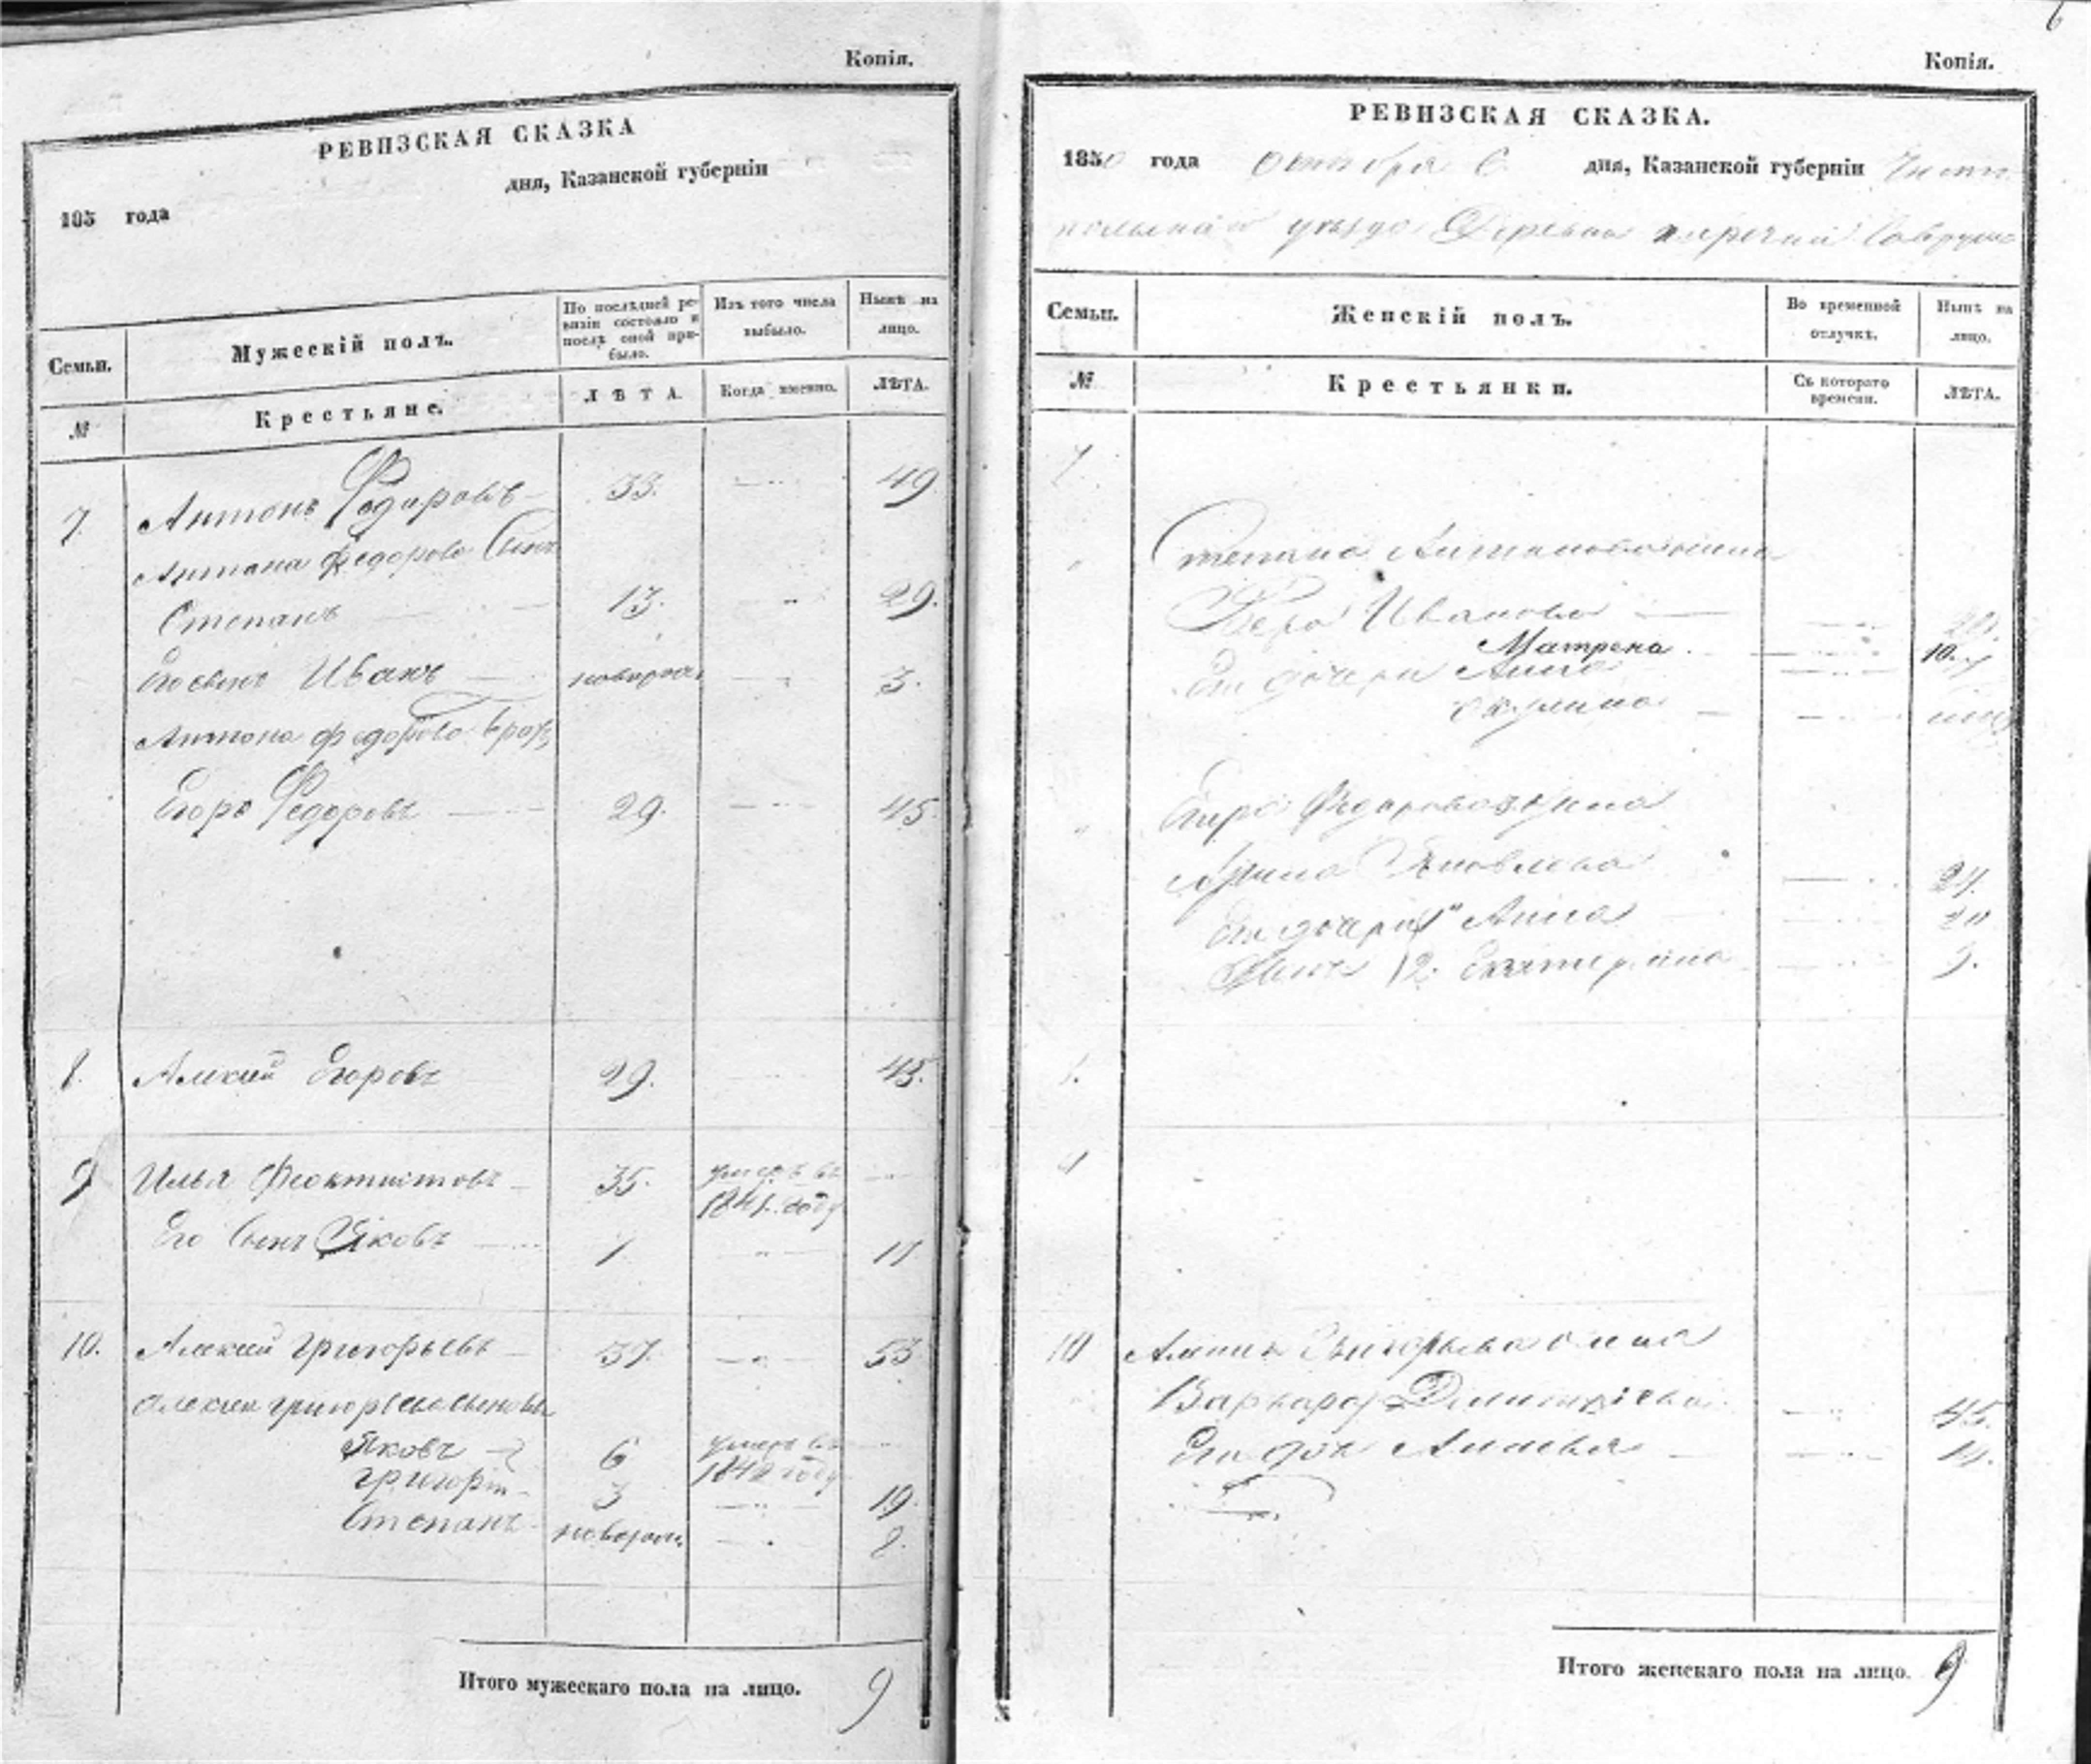 Копія.
РЕВИЗСКАЯ СКАЗКА
185 года дня, Казанской губерніи
Семьи.
Мужескій полъ.
По послѣдней ре-
визіи состояло и
послѣ оной при-
было.
Изъ того числа
выбыло.
Нынѣ на
лицо.
№
Крестьяне.
ЛѢТА.
Когда именно.
ЛѢТА.
7. Антонъ Федоровъ 33. 49
Антона Федорова Сынъ
Степанъ 13. 29.
Его сынъ Иванъ новорож. 3.
Антона Федорова братъ
Егоръ Федоровъ 29. 45.
8. Алексей Егоровъ 29. 45.
9 Илья Феоктистовъ 35. умеръ въ
1841. году
Его Сынъ Яковъ 1 17
10. Алексей Григорьевъ 37. 53
Алексея Григорьева сыновья
Яковъ 6 умеръ въ
184 году
Григорій 3 19.
Степанъ новорож. 8.
Итого мужескаго пола на лицо. 9
6
Копія.
РЕВИЗСКАЯ СКАЗКА.
1850 года Октября 6 дня, Казанской губерніи Чисто
польскаго уезда Деревни
Семьи.
Женскій полъ.
Во временной
отлучкѣ.
Нынѣ на
лицо.
№
Крестьянки.
Съ котораго
времени.
ЛѢТА.
7
Степана Антонова жена
Вера Иванова
Матрена 10.
Ея дочери Анна
Акулина
Егора Федорова жена
Яковлева
Ея дочери 1 Анна
2. Екатерина
8.
9
10 Алексея Григорьева жена
Варвара Дмитриева 45.
Ея дочь
Итого женскаго пола на лицо. 9